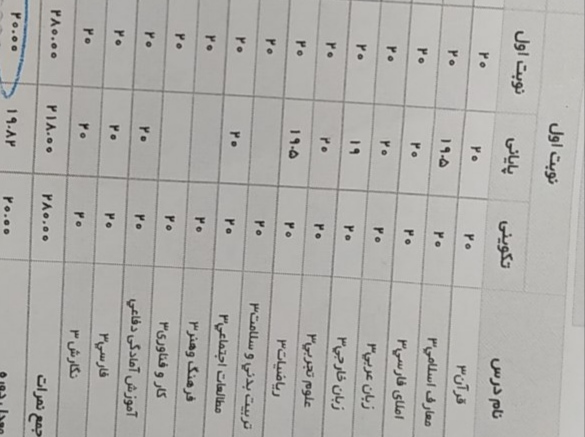 نوبت اول
نام درس تکوینی پایانی نوبت اول
قرآن۳ ۲۰ ۲۰ ۲۰
معارف اسلامی۳ ۲۰ ۱۹.۵ ۲۰
املای فارسی۳ ۲۰ ۲۰ ۲۰
زبان عربی۳ ۲۰ ۲۰ ۲۰
زبان خارجی۳ ۲۰ ۱۹ ۲۰
علوم تجربی۳ ۲۰ ۲۰ ۲۰
ریاضیات۳ ۲۰ ۱۹.۵ ۲۰
تربیت بدنی و سلامت۳ ۲۰ ۲۰
مطالعات اجتماعی۳ ۲۰ ۲۰ ۲۰
فرهنگ وهنر۳ ۲۰ ۲۰
کار و فناوری۳ ۲۰ ۲۰
آموزش آمادگی دفاعی ۲۰ ۲۰ ۲۰
فارسی۳ ۲۰ ۲۰ ۲۰
نگارش ۳ ۲۰ ۲۰ ۲۰
جمع نمرات ۲۸۰.۰۰ ۲۱۸.۰۰ ۲۸۰.۰۰
۲۰.۰۰ ۱۹.۸۲ ۲۰.۰۰